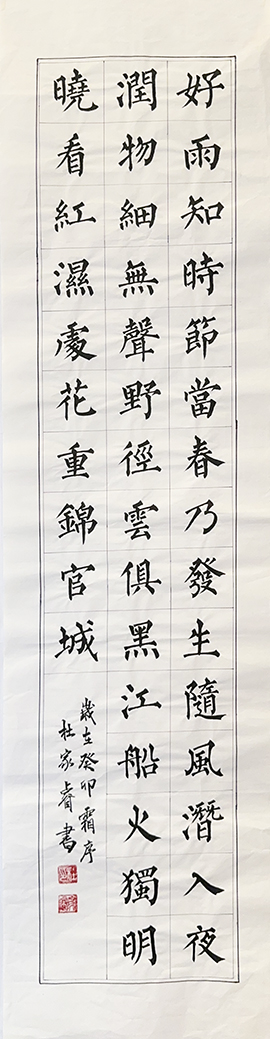 好雨知時節當春乃發生隨風潛入夜
潤物細無聲野徑雲俱黑江船火獨明
曉看紅濕處花重錦官城
歲在癸卯霜序
杜家睿書